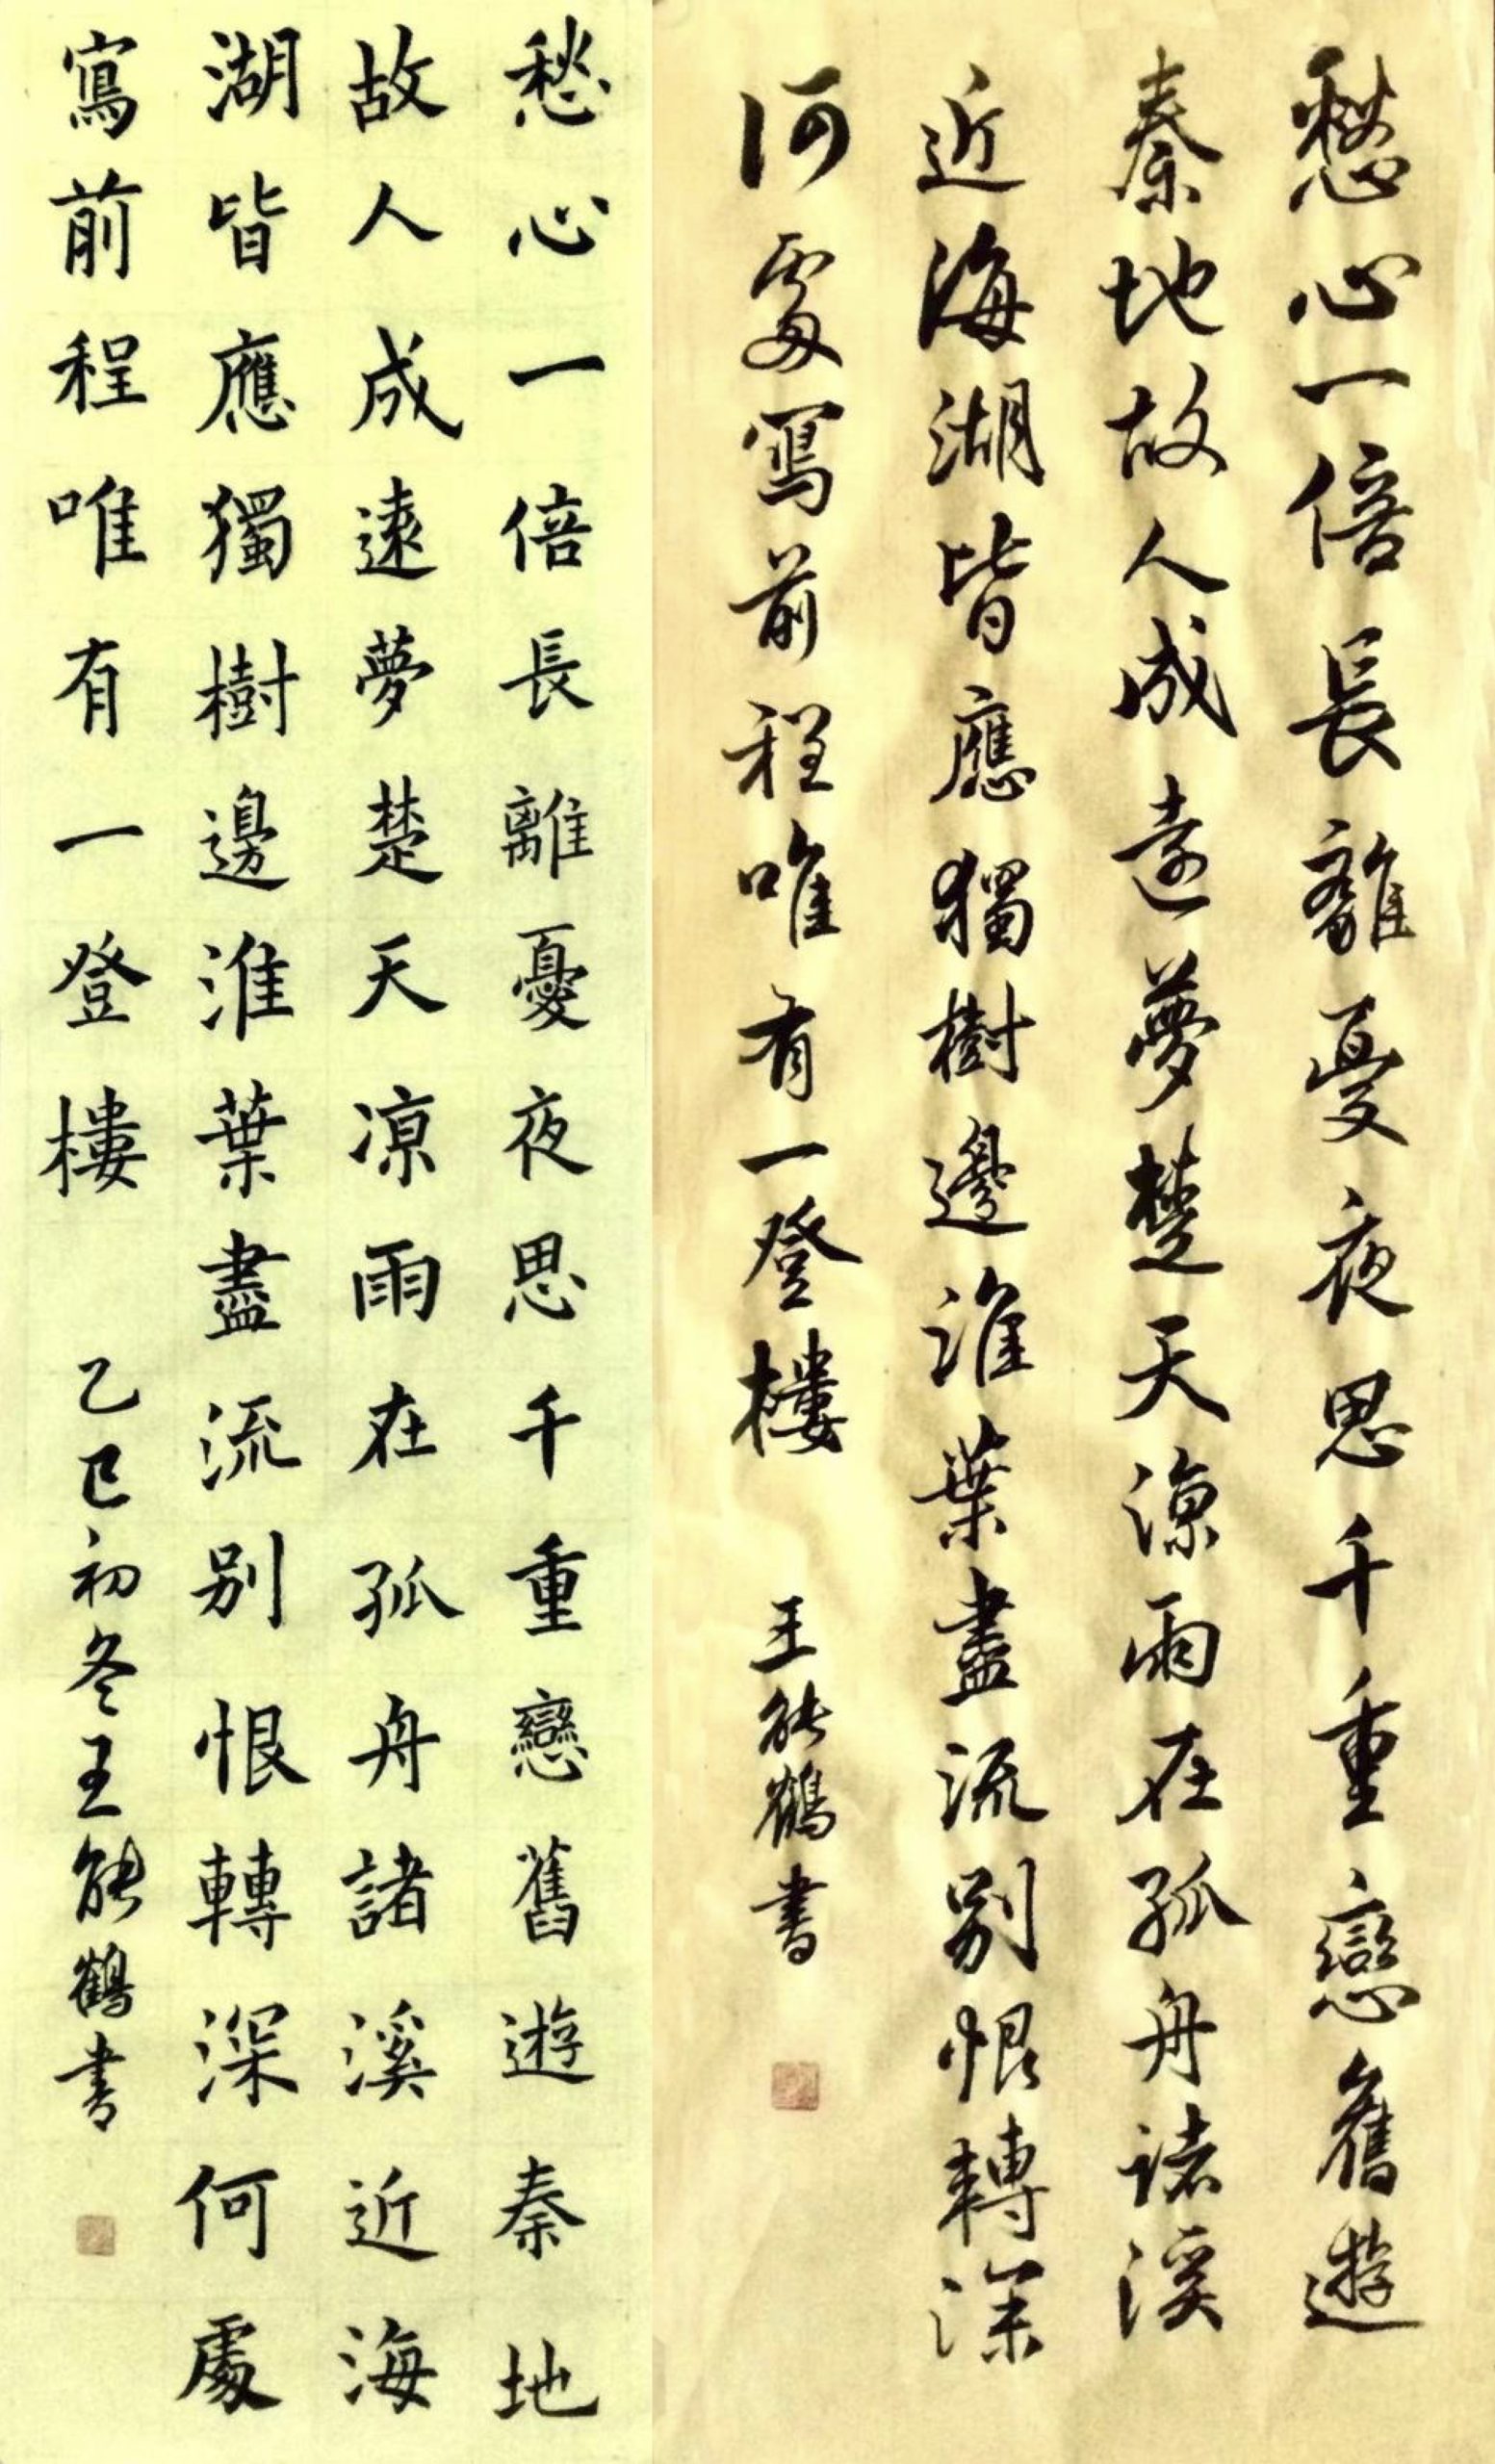 愁心一倍長離憂夜思千重戀舊遊秦地
故人成遠夢楚天涼雨在孤舟諸溪近海
湖皆應獨樹邊淮葉盡流别恨轉深何處
寫前程唯有一登樓
乙巳初冬王能鶴書
愁心一倍長離憂夜思千重戀舊遊
秦地故人成遠夢楚天涼雨在孤舟諸溪
近海湖皆應獨樹邊淮葉盡流别恨轉深
何處寫前程唯有一登樓
王能鶴書